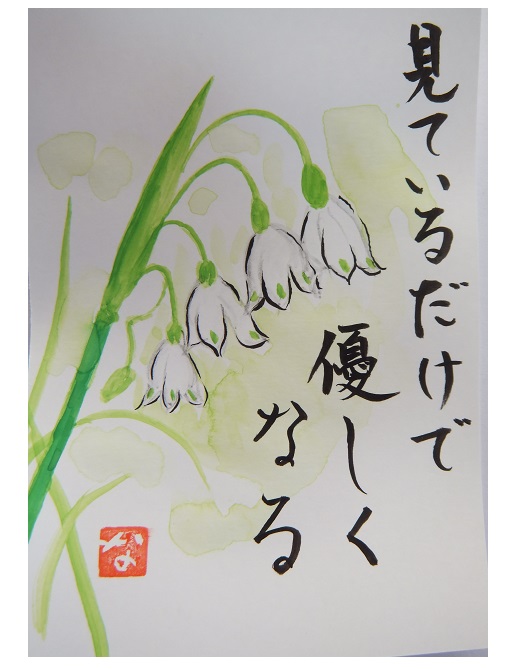 見ているだけで
優しく
なる
な